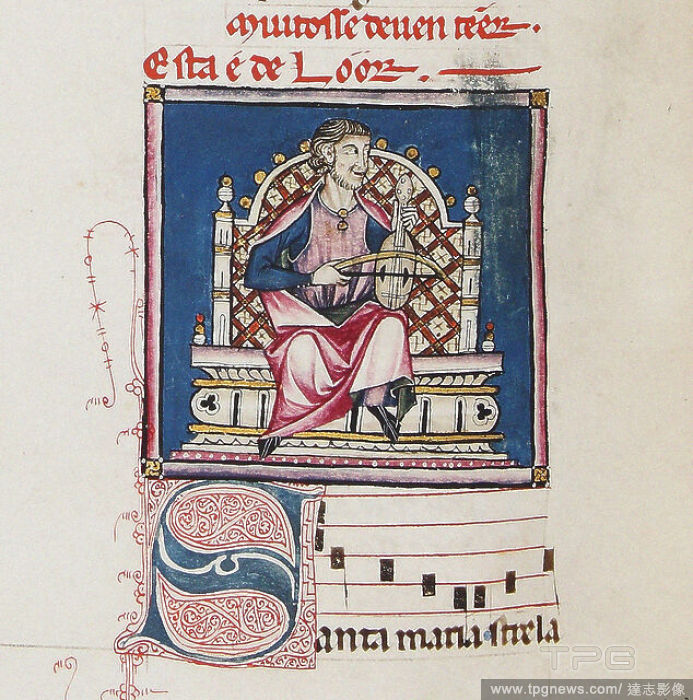 Muitosse deven teer.
Esta é de Loor.
Santa maria strela
TPG
www.tpgnews.com / 達志影像